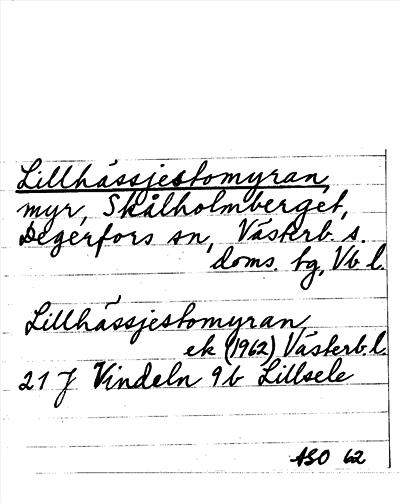 Lillhässjestomyran,
myr, Skålholmberget,
Degerfors sn, Västerb. s.
doms. tg, Vb l.
Lillhässjestomyran,
ek (1962) Västerb. l.
21 J Vindeln 9b Lillsele
ASO 62